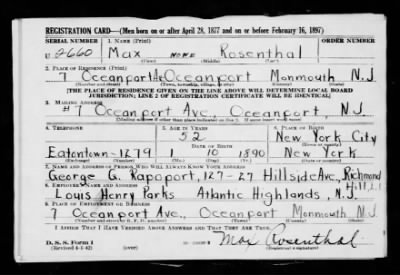 REGISTRATION CARD—(Men born on or after April 28, 1877 and on or before February 16, 1897)
SERIAL NUMBER 1. NAME (Print) ORDER NUMBER
U 2660 Max NONE Rosenthal
(First) (Middle) (Last)
2. PLACE OF RESIDENCE (Print)
7 Oceanport Av Oceanport Monmouth N.J.
(Number and street) (Town, township, village, or city) (County) (State)
[THE PLACE OF RESIDENCE GIVEN ON THE LINE ABOVE WILL DETERMINE LOCAL BOARD
JURISDICTION; LINE 2 OF REGISTRATION CERTIFICATE WILL BE IDENTICAL]
3. MAILING ADDRESS
#7 Oceanport Ave., Oceanport, N.J.
[Mailing address if other than place indicated on line 2. If same insert word same]
4. TELEPHONE 5. AGE IN YEARS 6. PLACE OF BIRTH
52 New York City
DATE OF BIRTH (Town or county)
Eatontown-1279 1 10 1890 New York
(Exchange) (Number) (Mo.) (Day) (Yr.) (State or country)
7. NAME AND ADDRESS OF PERSON WHO WILL ALWAYS KNOW YOUR ADDRESS
George G. Rapoport, 127-27 Hillside Ave, Richmond Hill, L.I.
8. EMPLOYER'S NAME AND ADDRESS
Louis Henry Parks Atlantic Highlands, N.J.
9. PLACE OF EMPLOYMENT OR BUSINESS
7 Oceanport Ave., Oceanport Monmouth N.J.
(Number and street or R. F. D. number) (Town) (County) (State)
I AFFIRM THAT I HAVE VERIFIED ABOVE ANSWERS AND THAT THEY ARE TRUE.
D. S. S. Form 1
(Revised 4-1-42) (over) Max Rosenthal